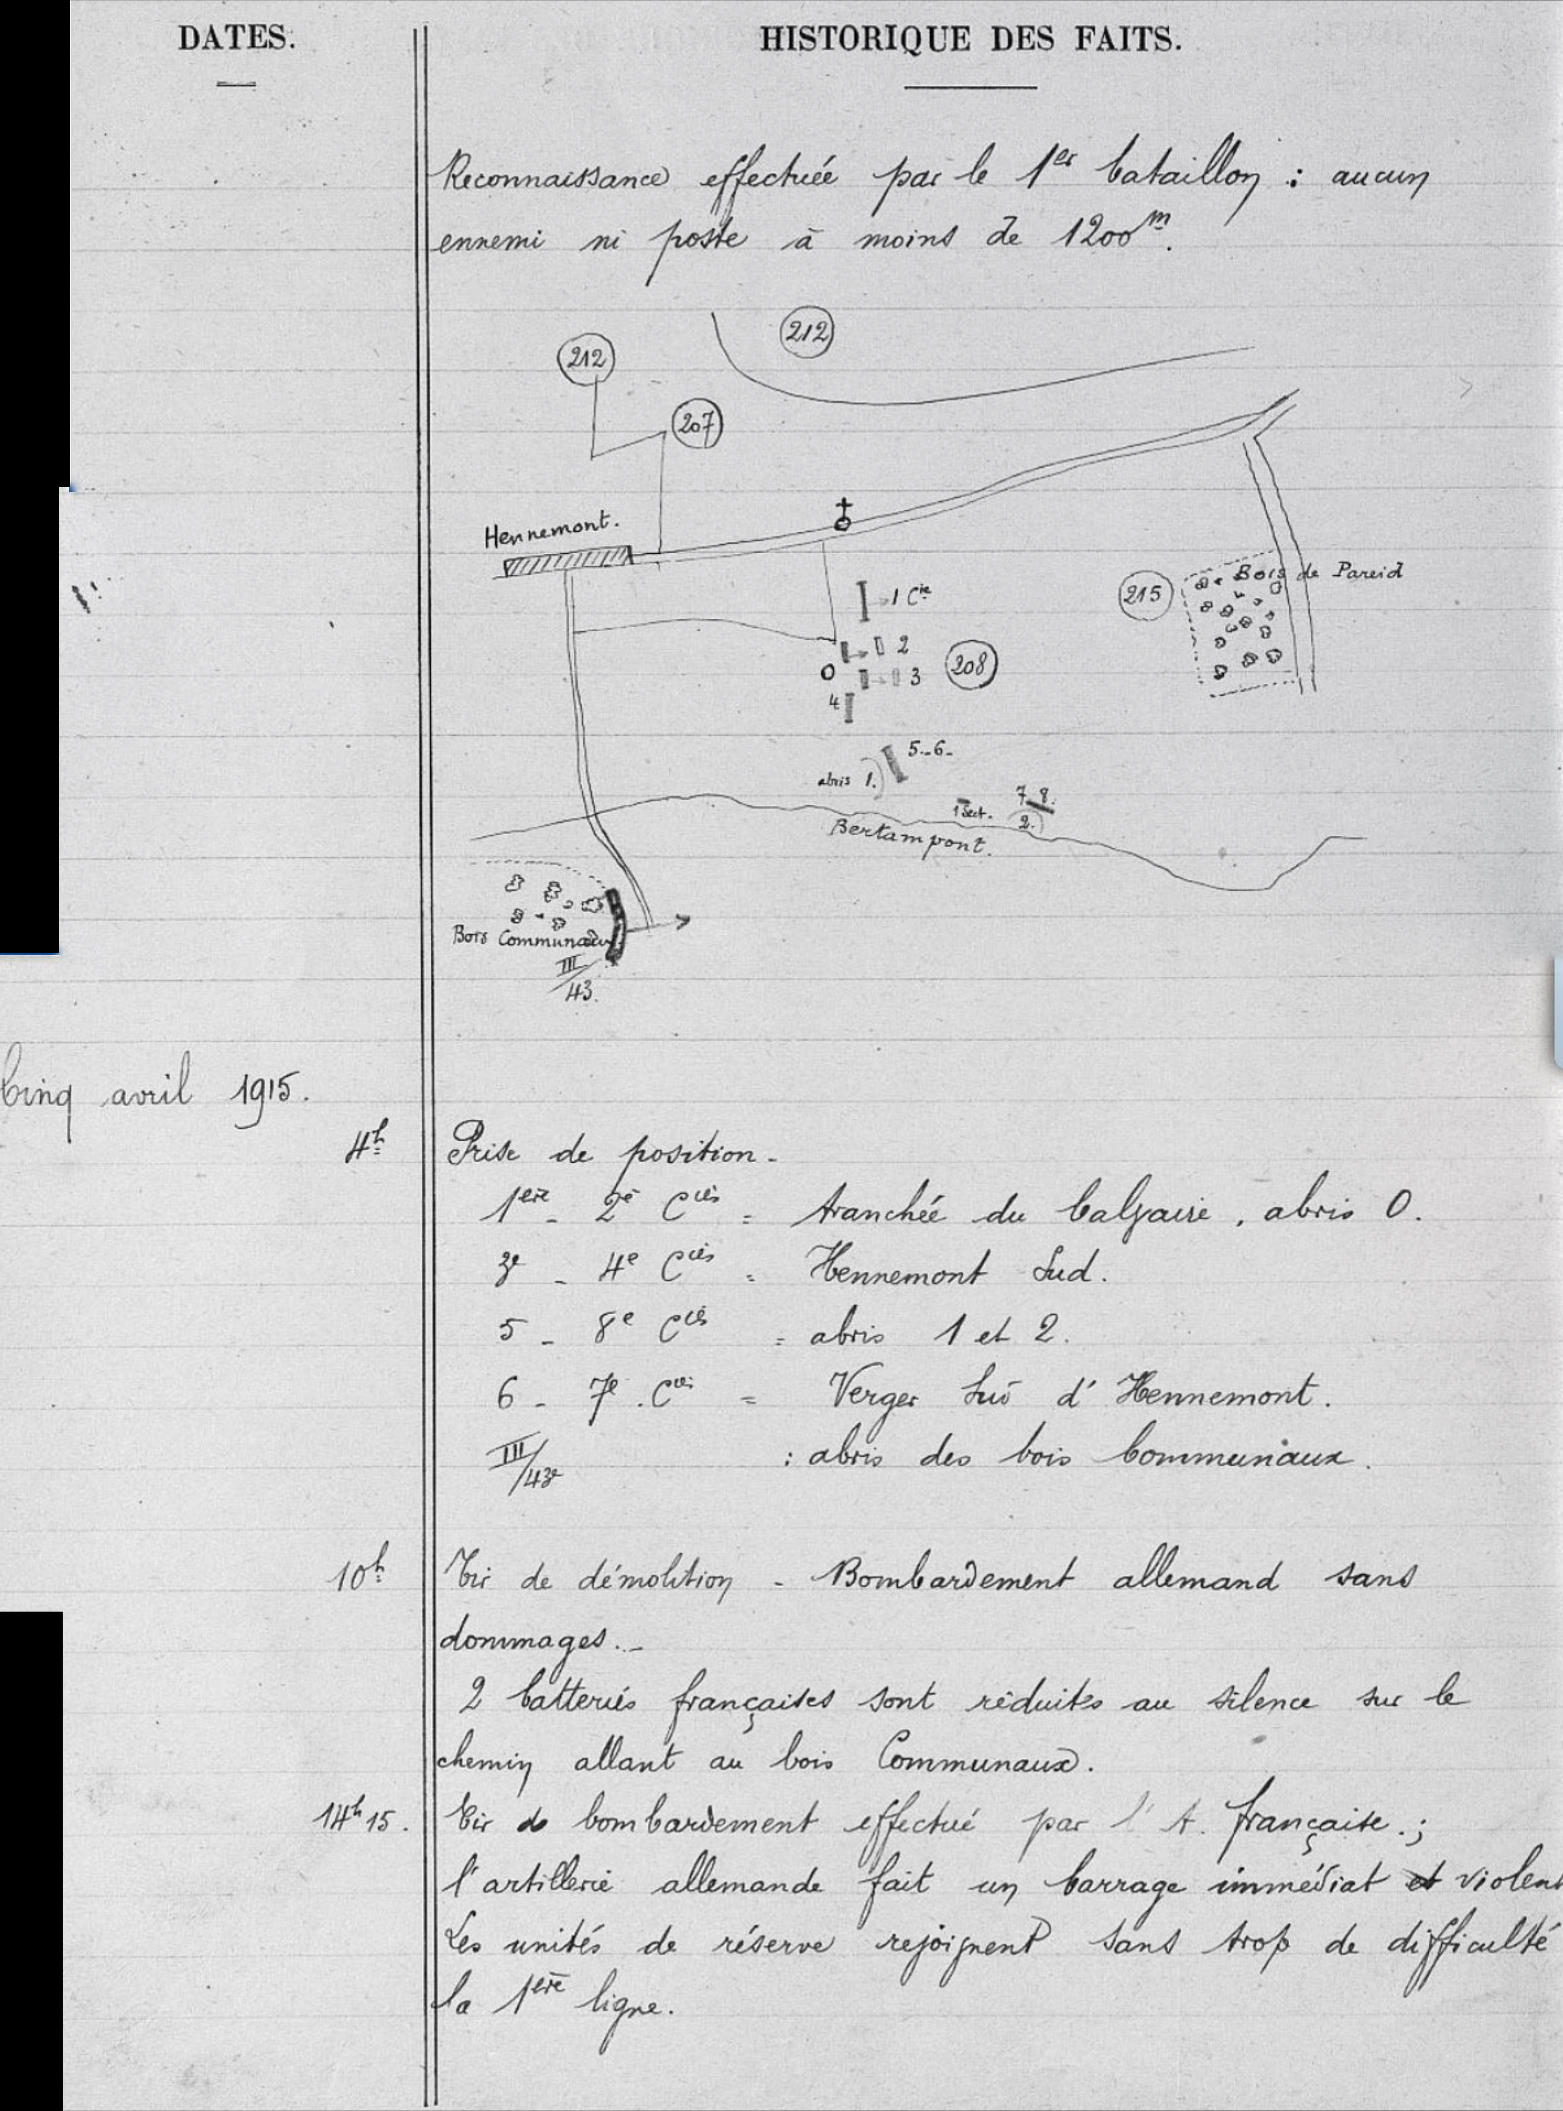 DATES.
HISTORIQUE DES FAITS.
Reconnaissance effectuée par le 1er bataillon : aucun
ennemi ni poste à moins de 1200m.
212
212
207
Hennemont.
1 Cie
215
Bois de Pareid
2
0
3
208
4
5-6-
abris 1.
7 8.
1 Sect.
2.
Bertampont.
Bois Communaux
III/43.
Cinq avril 1915.
4h Prise de position -
1ère - 2e Cies = tranchée du Calvaire, abris 0.
3e - 4e Cies = Hennemont Sud.
5 - 8e Cies = abris 1 et 2.
6 - 7e. Cies = Verger Sud d'Hennemont.
III/43e : abris des bois Communaux.
10h Tir de démolition - Bombardement allemand sans
dommages.-
2 batteries françaises sont réduites au silence sur le
chemin allant au bois Communaux.
14h15. Tir de bombardement effectué par l'A. française.;
l'artillerie allemande fait un barrage immédiat et violent
Les unités de réserve rejoignent sans trop de difficulté
la 1ère ligne.